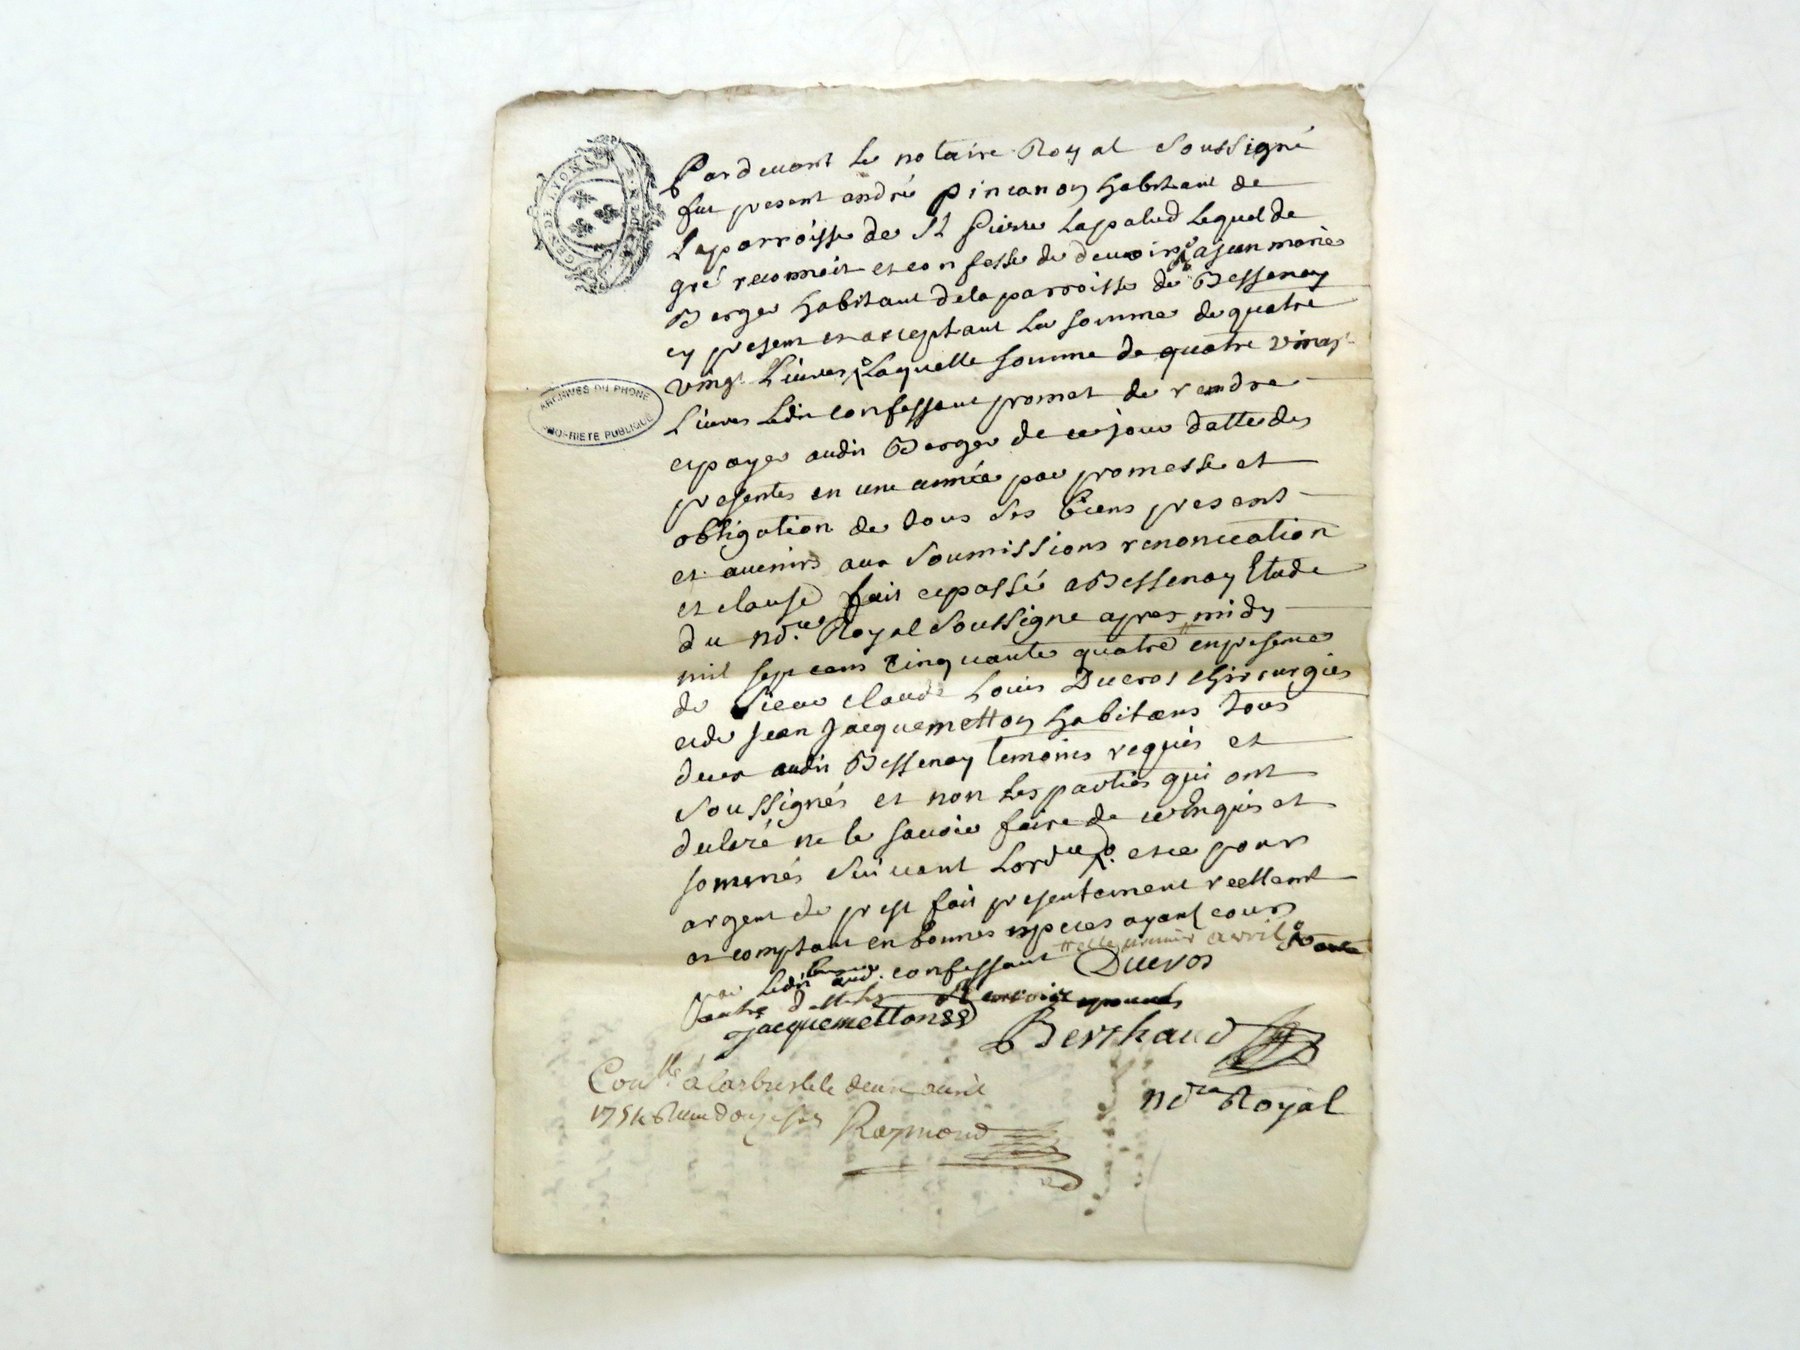 Pardeuant Le notaire Royal Soussigné
fut present andré pincanon habitant de
Laparroisse de St Pierre Lapalud Lequel de
gré reconnoit et confesse de deuoir a jean marie
Berger habitant dela parroisse de Bessenay
cy present et acceptant La somme de quatre
vingt Liures Laquelle somme de quatre vingt
Liures Ledit confessant promet de rendre
et payer audit Berger de ce jour datte des
presentes en une année par promesse et
obligation de tous ses biens present
et auenirs aux soumissions renonciation
et clause fait et passé a Bessenay Etude
du nore Royal Soussigne apres midy
mil sept cens cinquante quatre en presence
de sieur claude Louis Ducros chirurgien
et de Jean Jacquemetton habitans tous
deux audit Bessenay temoins requis et
soussignés et non Les parties qui ont
declaré ne le sauoir faire de ce Enquis et
sommés suiuant Lordce et ce pour
argent de prest fait presentement reellement
et comptant en bonnes especes ayant cours
par Ledit Berger aud. confessant et le premier avril
Ducros
Jacquemetton
Berthaud
nore Royal
Conlle à Larbresle le deux auril
1754 Recu douze sols
Raymond
ARCHIVES DU RHONE
PROPRIETE PUBLIQUE